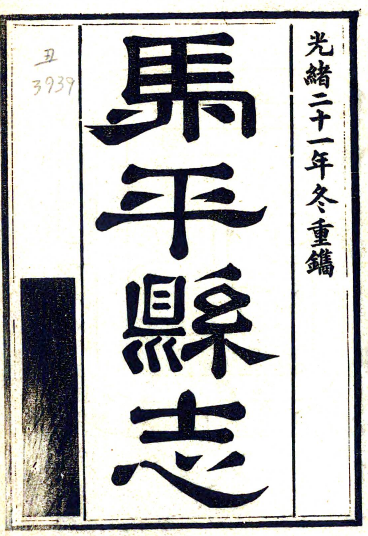 光緒二十一年冬重鐫
馬平縣志
丑
3939